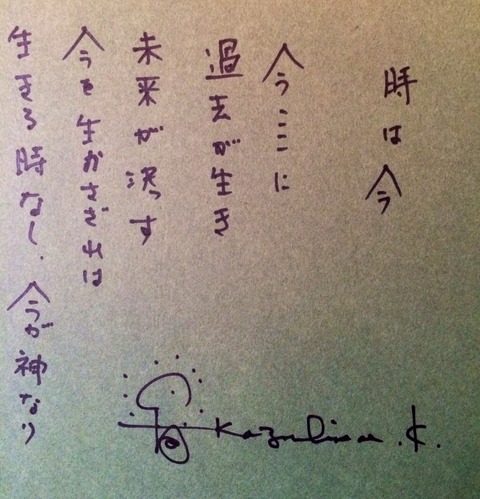 時は今
今ここに
過去が生き
未来が決す
今を生かさざれは
生きる時なし.今が神なり
Kazuhisa .K.